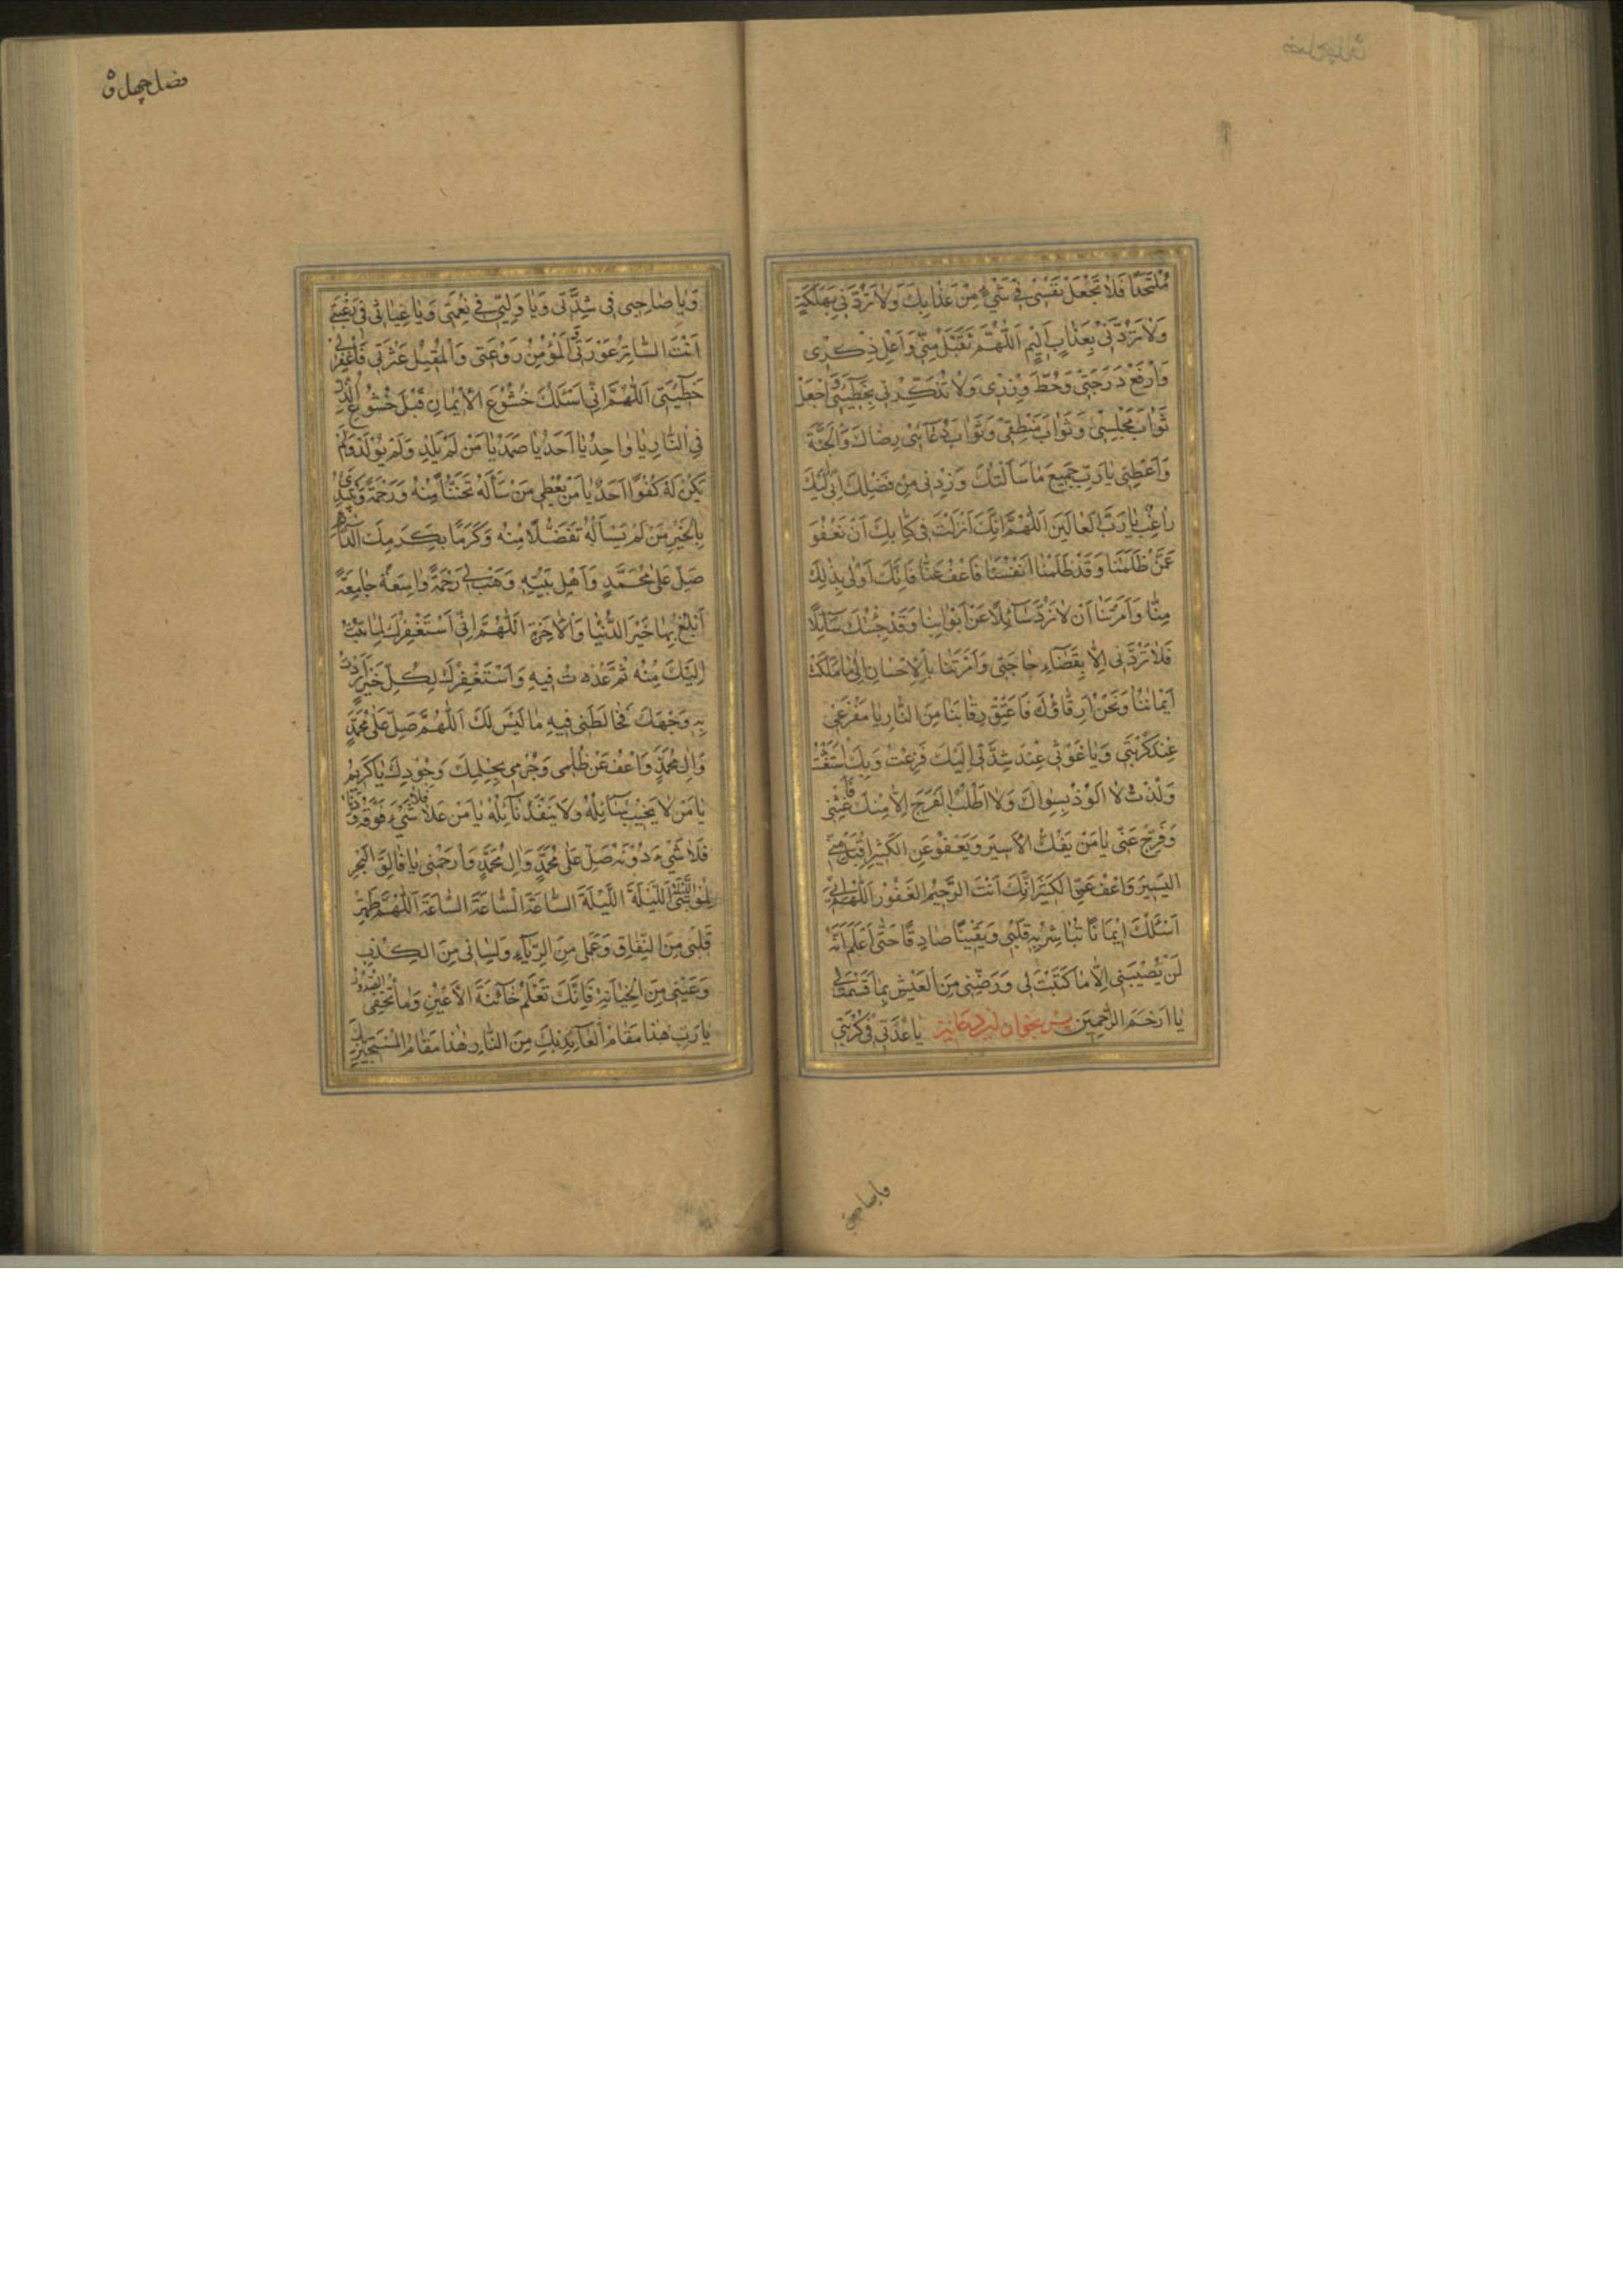 مُلْتَحَدًا فَلَا تَجْعَلْ نَفْسِي فِي شَيْءٍ مِنْ عَذَابِكَ وَلَا تَرُدَّنِي بِهَلَكَةٍ
وَلَا تَرُدَّنِي بِعَذَابٍ أَلِيمٍ اَللّٰهُمَّ تَقَبَّلْ مِنِّي وَأَعْلِ ذِكْرِي
وَارْفَعْ دَرَجَتِي وَحُطَّ وِزْرِي وَلَا تَذْكُرْنِي بِخَطِيئَتِي وَاجْعَلْ
ثَوَابَ مَجْلِسِي وَثَوَابَ مَنْطِقِي وَثَوَابَ دُعَائِي رِضَاكَ وَالْجَنَّةَ
وَأَعْطِنِي يَا رَبِّ جَمِيعَ مَا سَأَلْتُكَ وَزِدْنِي مِنْ فَضْلِكَ إِنِّي إِلَيْكَ
رَاغِبٌ يَا رَبَّ الْعَالَمِينَ اَللّٰهُمَّ إِنَّكَ أَنْزَلْتَ فِي كِتَابِكَ أَنْ نَعْفُوَ
عَمَّنْ ظَلَمَنَا وَقَدْ ظَلَمْنَا أَنْفُسَنَا فَاعْفُ عَنَّا فَإِنَّكَ أَوْلَى بِذٰلِكَ
مِنَّا وَأَمَرْتَنَا أَنْ لَا نَرُدَّ سَائِلًا عَنْ أَبْوَابِنَا وَقَدْ جِئْتُكَ سَائِلًا
فَلَا تَرُدَّنِي إِلَّا بِقَضَاءِ حَاجَتِي وَأَمَرْتَنَا بِالْإِحْسَانِ إِلَى مَا مَلَكَتْ
أَيْمَانُنَا وَنَحْنُ أَرِقَّاؤُكَ فَأَعْتِقْ رِقَابَنَا مِنَ النَّارِ يَا مَفْزَعِي
عِنْدَ كُرْبَتِي وَيَا غَوْثِي عِنْدَ شِدَّتِي إِلَيْكَ فَزِعْتُ وَبِكَ اسْتَغَثْتُ
وَلُذْتُ لَا أَلُوذُ بِسِوَاكَ وَلَا أَطْلُبُ الْفَرَجَ إِلَّا مِنْكَ فَأَغِثْنِي
وَفَرِّجْ عَنِّي يَا مَنْ يَفُكُّ الْأَسِيرَ وَيَعْفُو عَنِ الْكَثِيرِ اقْبَلْ مِنِّي
الْيَسِيرَ وَاعْفُ عَنِّي الْكَثِيرَ إِنَّكَ أَنْتَ الرَّحِيمُ الْغَفُورُ اَللّٰهُمَّ إِنِّي
أَسْئَلُكَ إِيمَانًا تُبَاشِرُ بِهِ قَلْبِي وَيَقِينًا صَادِقًا حَتَّى أَعْلَمَ أَنَّهُ
لَنْ يُصِيبَنِي إِلَّا مَا كَتَبْتَ لِي وَرَضِّنِي مِنَ الْعَيْشِ بِمَا قَسَمْتَ لِي
يَا أَرْحَمَ الرَّاحِمِينَ پس بخوان این دعا نیز يَا عُدَّتِي فِي كُرْبَتِي
فصل چهل و
وَيَا صَاحِبِي فِي شِدَّتِي وَيَا وَلِيِّي فِي نِعْمَتِي وَيَا غِيَاثِي فِي رَغْبَتِي
أَنْتَ السَّاتِرُ عَوْرَتِي وَالْمُؤْمِنُ رَوْعَتِي وَالْمُقِيلُ عَثْرَتِي فَاغْفِرْ لِي
خَطِيئَتِي اَللّٰهُمَّ إِنِّي أَسْئَلُكَ خُشُوعَ الْإِيمَانِ قَبْلَ خُشُوعِ الذُّلِّ
فِي النَّارِ يَا وَاحِدُ يَا أَحَدُ يَا صَمَدُ يَا مَنْ لَمْ يَلِدْ وَلَمْ يُولَدْ وَلَمْ
يَكُنْ لَهُ كُفُوًا أَحَدٌ يَا مَنْ يُعْطِي مَنْ سَأَلَهُ تَحَنُّنًا مِنْهُ وَرَحْمَةً وَيَبْتَدِئُ
بِالْخَيْرِ مَنْ لَمْ يَسْأَلْهُ تَفَضُّلًا مِنْهُ وَكَرَمًا بِكَرَمِكَ الدَّائِمِ
صَلِّ عَلَى مُحَمَّدٍ وَأَهْلِ بَيْتِهِ وَهَبْ لِي رَحْمَةً وَاسِعَةً جَامِعَةً
أَبْلُغُ بِهَا خَيْرَ الدُّنْيَا وَالْآخِرَةِ اَللّٰهُمَّ إِنِّي أَسْتَغْفِرُكَ لِمَا تُبْتُ
إِلَيْكَ مِنْهُ ثُمَّ عُدْتُ فِيهِ وَأَسْتَغْفِرُكَ لِكُلِّ خَيْرٍ أَرَدْتُ
بِهِ وَجْهَكَ فَخَالَطَنِي فِيهِ مَا لَيْسَ لَكَ اَللّٰهُمَّ صَلِّ عَلَى مُحَمَّدٍ
وَآلِ مُحَمَّدٍ وَاعْفُ عَنْ ظُلْمِي وَجُرْمِي بِحِلْمِكَ وَجُودِكَ يَا كَرِيمُ
يَا مَنْ لَا يَخِيبُ سَائِلُهُ وَلَا يَنْفَدُ نَائِلُهُ يَا مَنْ عَلَا فَلَا شَيْءَ فَوْقَهُ وَدَنَا
فَلَا شَيْءَ دُونَهُ صَلِّ عَلَى مُحَمَّدٍ وَآلِ مُحَمَّدٍ وَارْحَمْنِي يَا فَالِقَ الْبَحْرِ
لِمُوسَى اللَّيْلَةَ اللَّيْلَةَ اللَّيْلَةَ السَّاعَةَ السَّاعَةَ السَّاعَةَ اَللّٰهُمَّ طَهِّرْ
قَلْبِي مِنَ النِّفَاقِ وَعَمَلِي مِنَ الرِّيَاءِ وَلِسَانِي مِنَ الْكِذْبِ
وَعَيْنِي مِنَ الْخِيَانَةِ فَإِنَّكَ تَعْلَمُ خَائِنَةَ الْأَعْيُنِ وَمَا تُخْفِي الصُّدُورُ
يَا رَبِّ هٰذَا مَقَامُ الْعَائِذِ بِكَ مِنَ النَّارِ هٰذَا مَقَامُ الْمُسْتَجِيرِ بِكَ